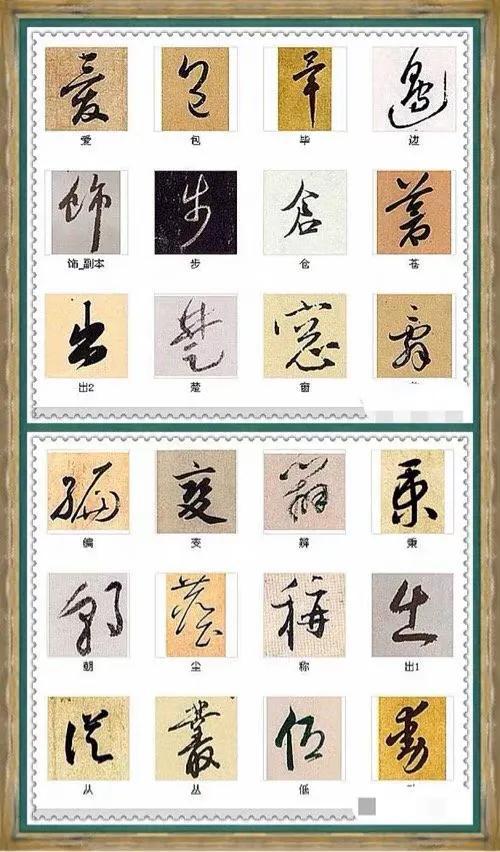 爱 包 毕 边
饰_副本 步 仓 苍
出2 楚 窗
编 变 辨 秉
朝 尘 称 出1
从 丛 低